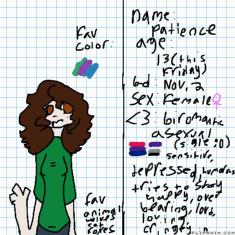 fav
color:
fav
animal
wolves
name:
patience
age:
13(this
friday)
bd: Nov, 2
Sex: Female♀
<3: biromantic
asexual
sensitive,
depressed,
tries to stay
happy, over
bearing, love,
loving,